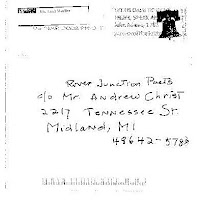 River Junction Poets
c/o Mr. Andrew Christ
2217 Tennessee St.
Midland, MI
48642-5783